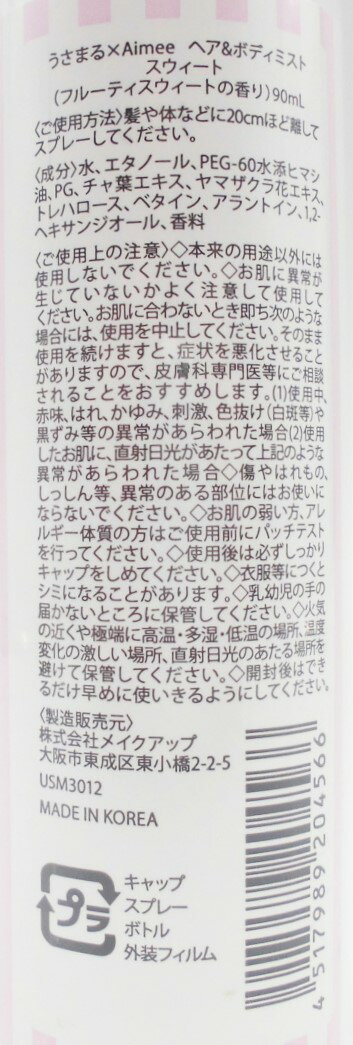 うさまる×Aimee ヘア&ボディミスト
スウィート
(フルーティスウィートの香り)90mL
〈ご使用方法〉髪や体などに20cmほど離して
スプレーしてください。
〈成分〉水、エタノール、PEG-60水添ヒマシ
油、PG、チャ葉エキス、ヤマザクラ花エキス、
トレハロース、ベタイン、アラントイン、1,2-
ヘキサンジオール、香料
〈ご使用上の注意〉◇本来の用途以外には
使用しないでください。◇お肌に異常が
生じていないかよく注意して使用して
ください。お肌に合わないとき即ち次のような
場合には、使用を中止してください。そのまま
使用を続けますと、症状を悪化させること
がありますので、皮膚科専門医等にご相談
されることをおすすめします。(1)使用中、
赤味、はれ、かゆみ、刺激、色抜け(白斑等)や
黒ずみ等の異常があらわれた場合(2)使用
したお肌に、直射日光があたって上記のような
異常があらわれた場合◇傷やはれもの、
しっしん等、異常のある部位にはお使いに
ならないでください。◇お肌の弱い方、アレ
ルギー体質の方はご使用前にパッチテスト
を行ってください。◇使用後は必ずしっかり
キャップをしめてください。◇衣服等につくと
シミになることがあります。◇乳幼児の手の
届かないところに保管してください。◇火気
の近くや極端に高温・多湿・低温の場所、温度
変化の激しい場所、直射日光のあたる場所を
避けて保管してください。◇開封後はでき
るだけ早めに使いきるようにしてください。
〈製造販売元〉
株式会社メイクアップ
大阪市東成区東小橋2-2-5
USM3012
MADE IN KOREA
プラ
キャップ
スプレー
ボトル
外装フィルム
4517989204566